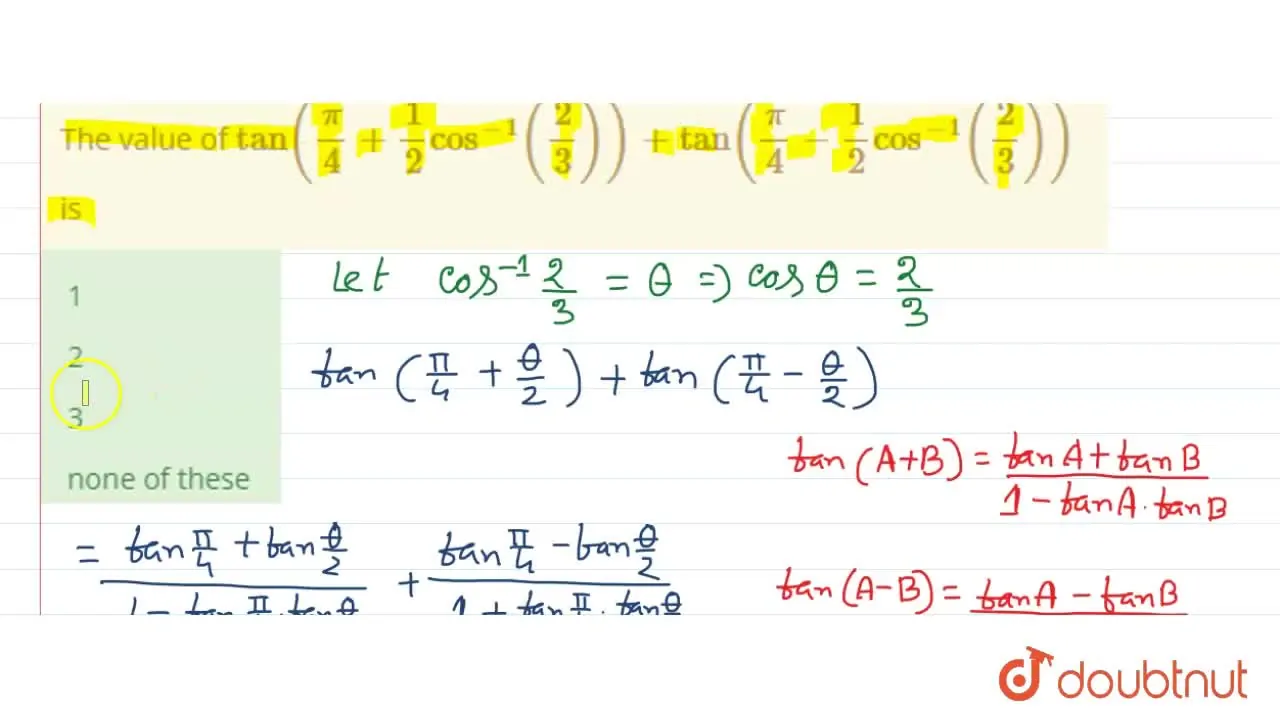 The value of tan(π/4 + 1/2 cos⁻¹(2/3)) + tan(π/4 − 1/2 cos⁻¹(2/3))
is
1
2
3
none of these
Let cos⁻¹ 2/3 = θ ⇒ cos θ = 2/3
tan (π/4 + θ/2) + tan (π/4 − θ/2)
tan (A+B) = tan A + tan B / 1 − tan A · tan B
= tan π/4 + tan θ/2 / 1 − tan π · tan θ + tan π/4 − tan θ/2 / 1 + tan π · tan θ
tan (A−B) = tan A − tan B
doubtnut